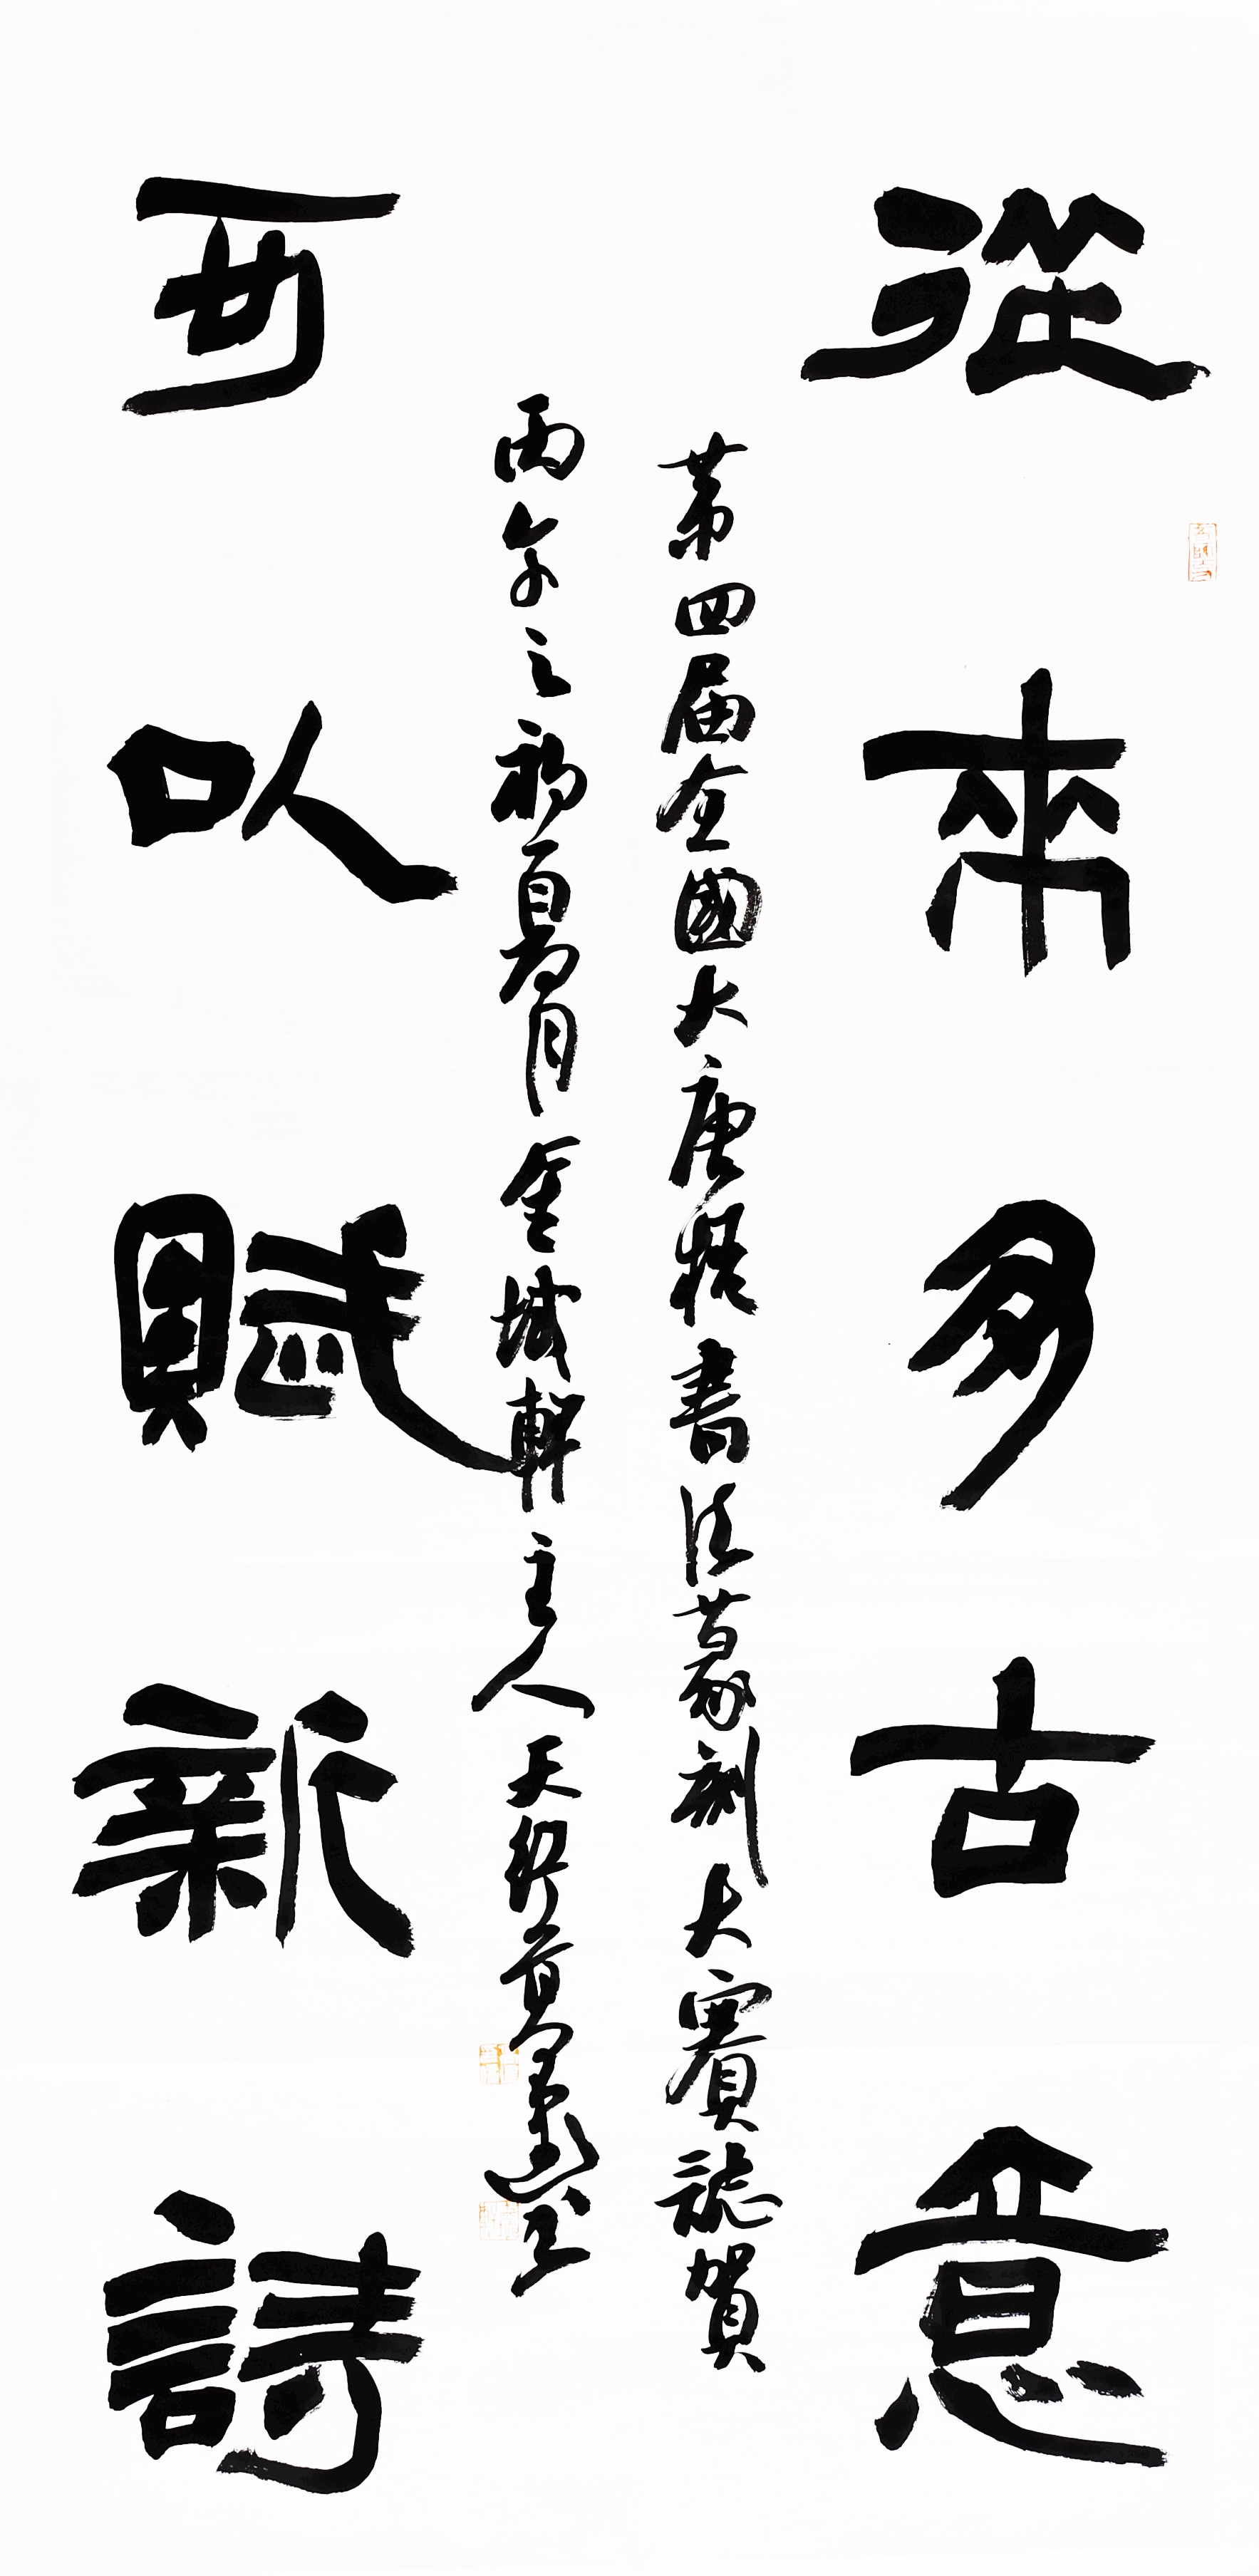 從來多古意
可以賦新詩
第四届全國大唐楷書法篆刻大賽誌賀
丙午之初夏月金城軒主人天行